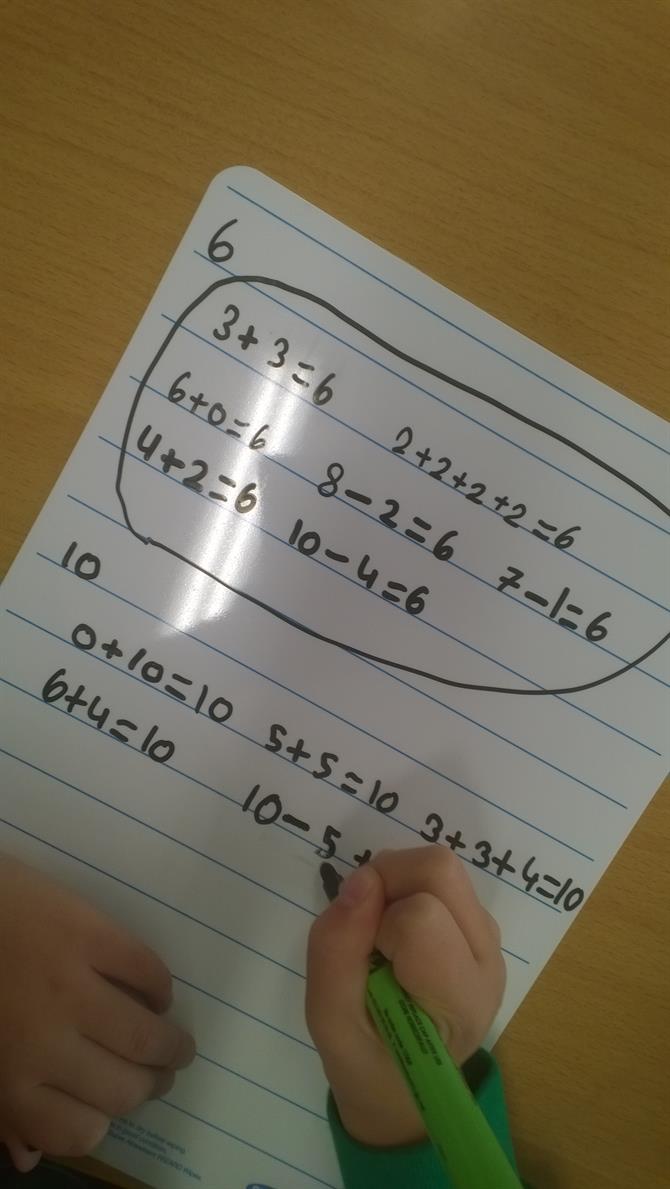 6
3+3=6
6+0=6
2+2+2+2=6
4+2=6
8-2=6
7-1=6
10-4=6
10
0+10=10
5+5=10
3+3+4=10
6+4=10
10-5+